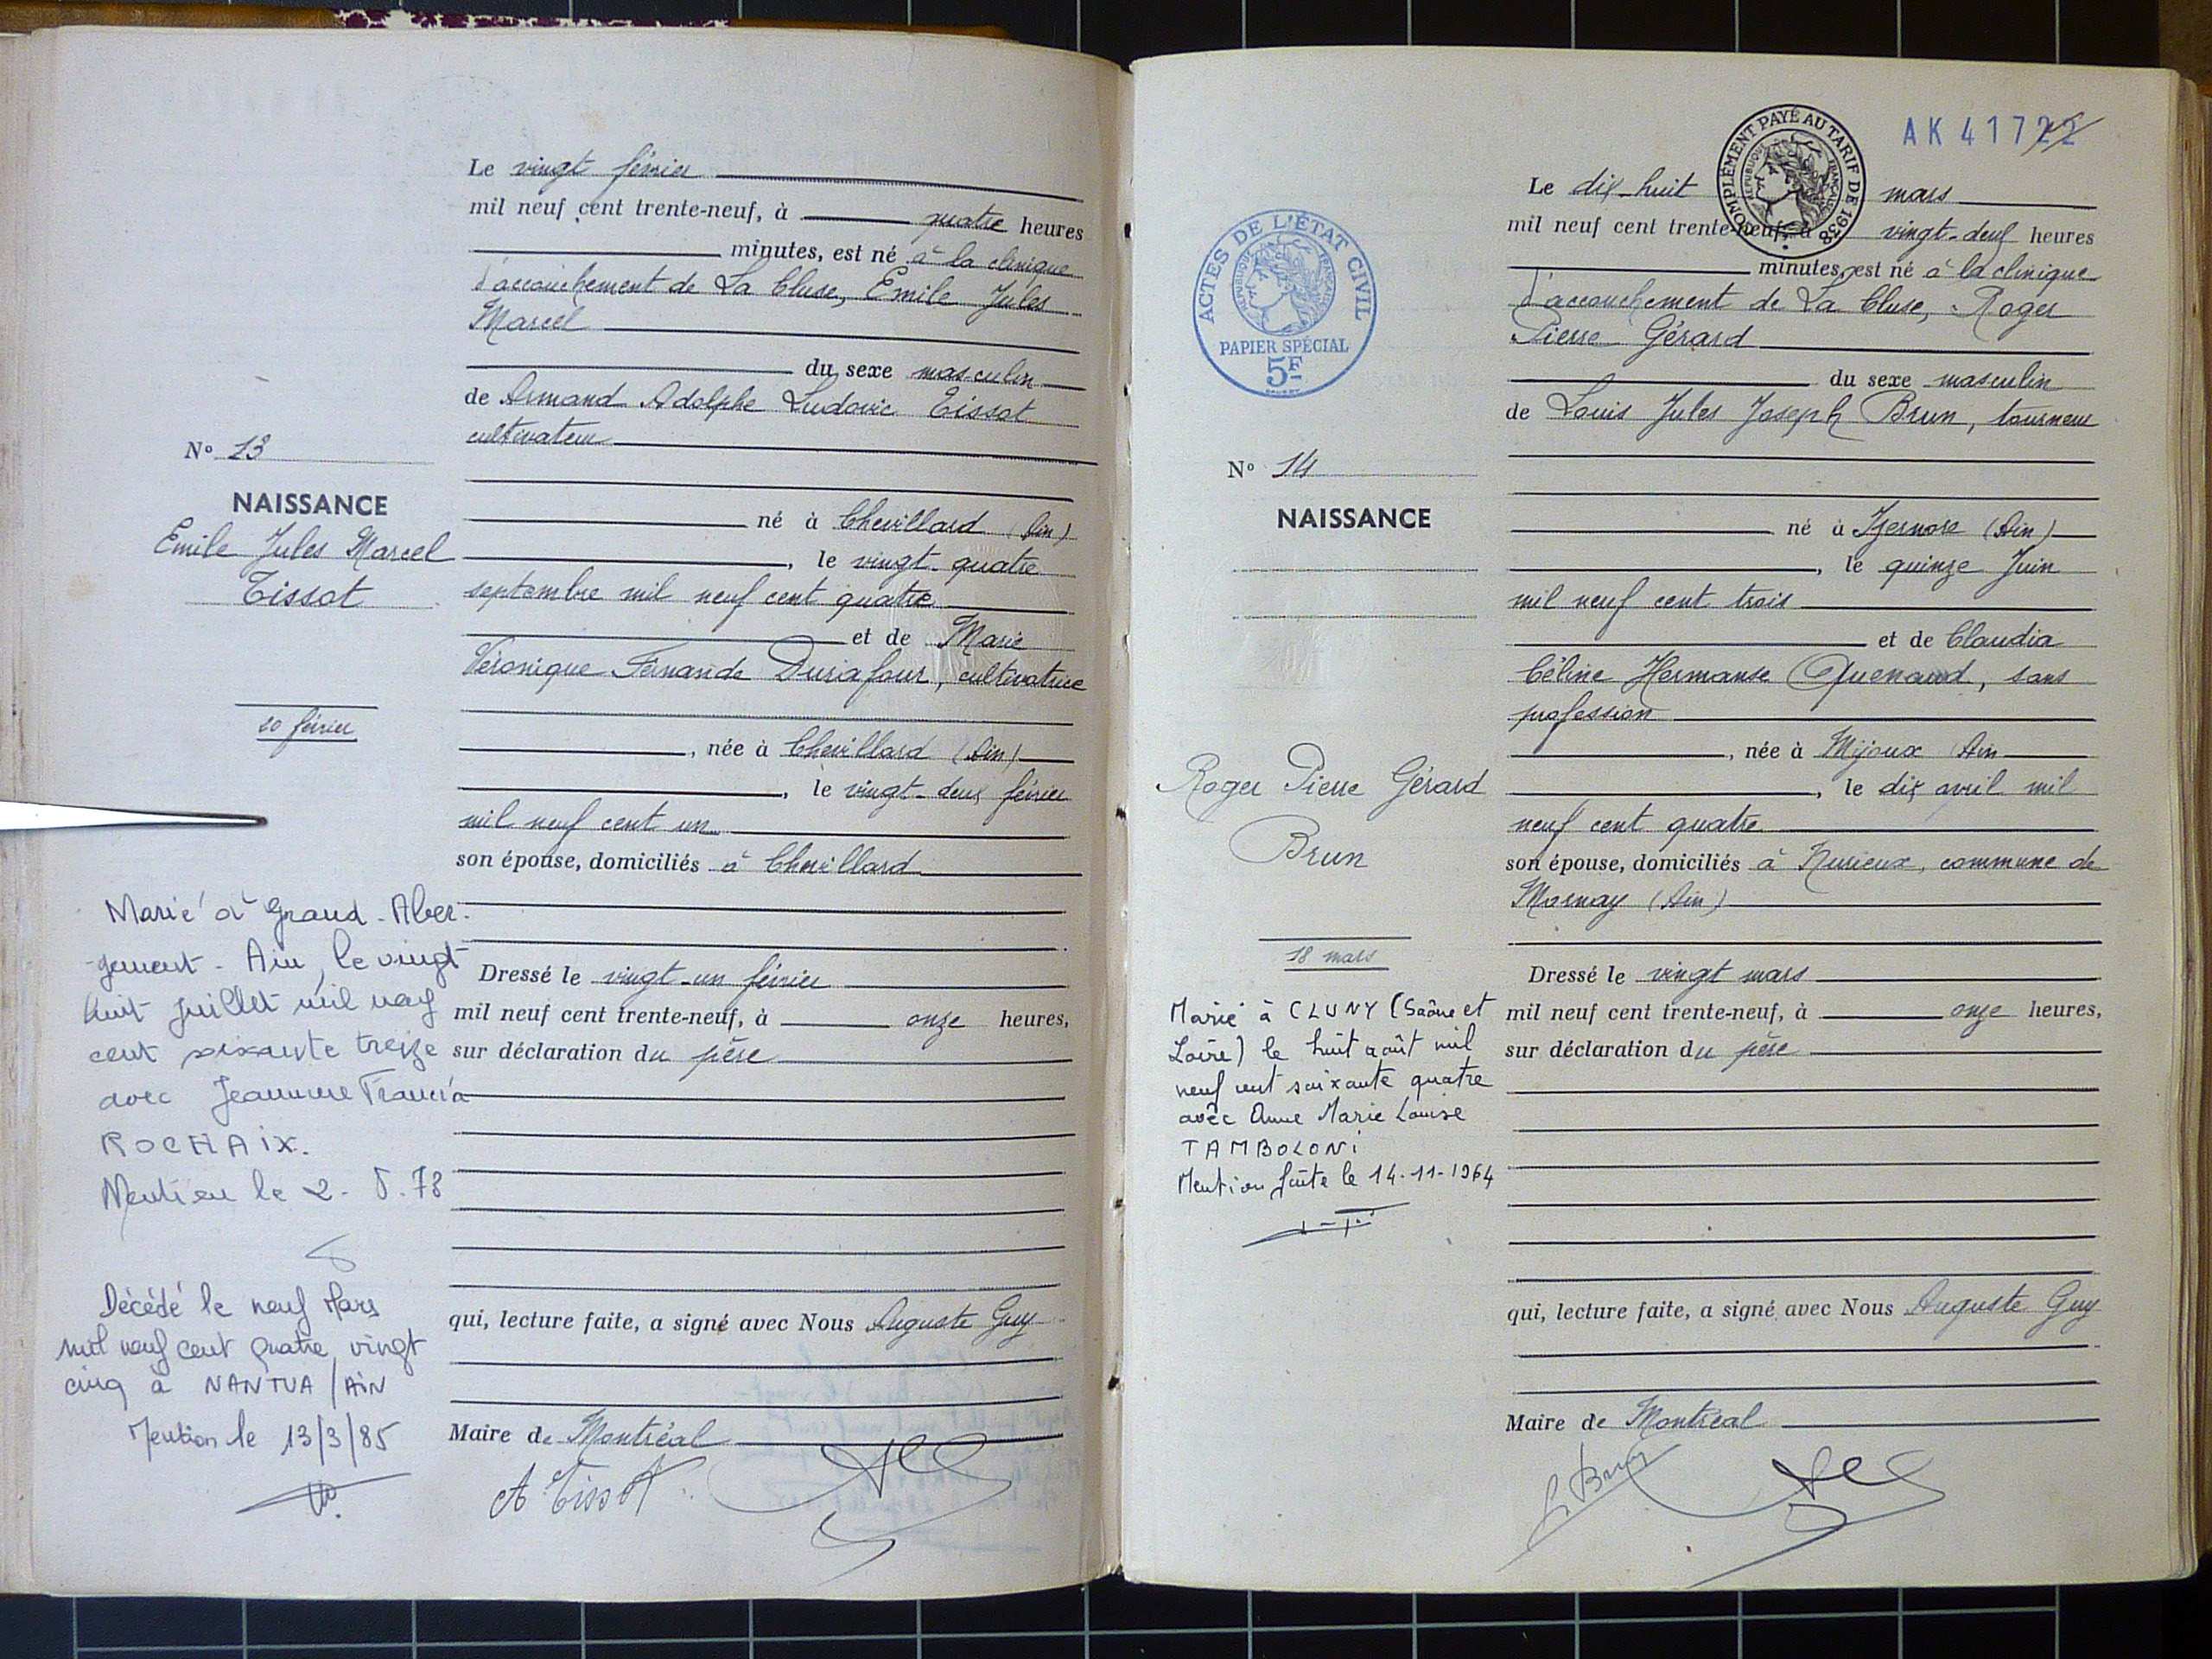 Le vingt février
mil neuf cent trente-neuf, à quatre heures
minutes, est né à la clinique
d'accouchement de La Cluse, Emile Jules
Marcel
du sexe masculin
de Armand Adolphe Ludovic Tissot
cultivateur
né à Chevillard (Ain)
, le vingt-quatre
septembre mil neuf cent quatre
et de Marie
Véronique Fernande Durafour, cultivatrice
, née à Chevillard (Ain)
, le vingt-deux février
mil neuf cent un
son épouse, domiciliés à Chevillard
Dressé le vingt-un février
mil neuf cent trente-neuf, à onze heures,
sur déclaration du père
qui, lecture faite, a signé avec Nous Auguste Guy
Maire de Montréal
A Tissot
No 13
NAISSANCE
Emile Jules Marcel
Tissot
20 février
Marié à Grand-Aber-
-gement - Ain, le vingt
huit juillet mil neuf
cent soixante treize
avec Jeannine Francia
ROCHAIX.
Mention le 2. 8. 73
Décédé le neuf Mars
mil neuf cent quatre vingt
cinq à NANTUA / AIN
Mention le 13/3/85
AK 41722
COMPLÉMENT PAYÉ AU TARIF DE 1938
RÉPUBLIQUE FRANÇAISE
Le dix-huit mars
mil neuf cent trente-neuf, à vingt-deux heures
minutes, est né à la clinique
d'accouchement de La Cluse, Roger
Pierre Gérard
du sexe masculin
de Louis Jules Joseph Brun, tourneur
né à Izernore (Ain)
, le quinze Juin
mil neuf cent trois
et de Claudia
Céline Hermanse Quenard, sans
profession
, née à Mijoux Ain
, le dix avril mil
neuf cent quatre
son épouse, domiciliés à Nurieux, commune de
Mornay (Ain)
Dressé le vingt mars
mil neuf cent trente-neuf, à onze heures,
sur déclaration du père
qui, lecture faite, a signé avec Nous Auguste Guy
Maire de Montréal
L Brun
ACTES DE L'ÉTAT CIVIL
RÉPUBLIQUE FRANÇAISE
PAPIER SPÉCIAL
5F
No 14
NAISSANCE
Roger Pierre Gérard
Brun
18 mars
Marié à CLUNY (Saône et
Loire) le huit août mil
neuf cent soixante quatre
avec Anne Marie Louise
TAMBOLONI
Mention faite le 14-11-1964